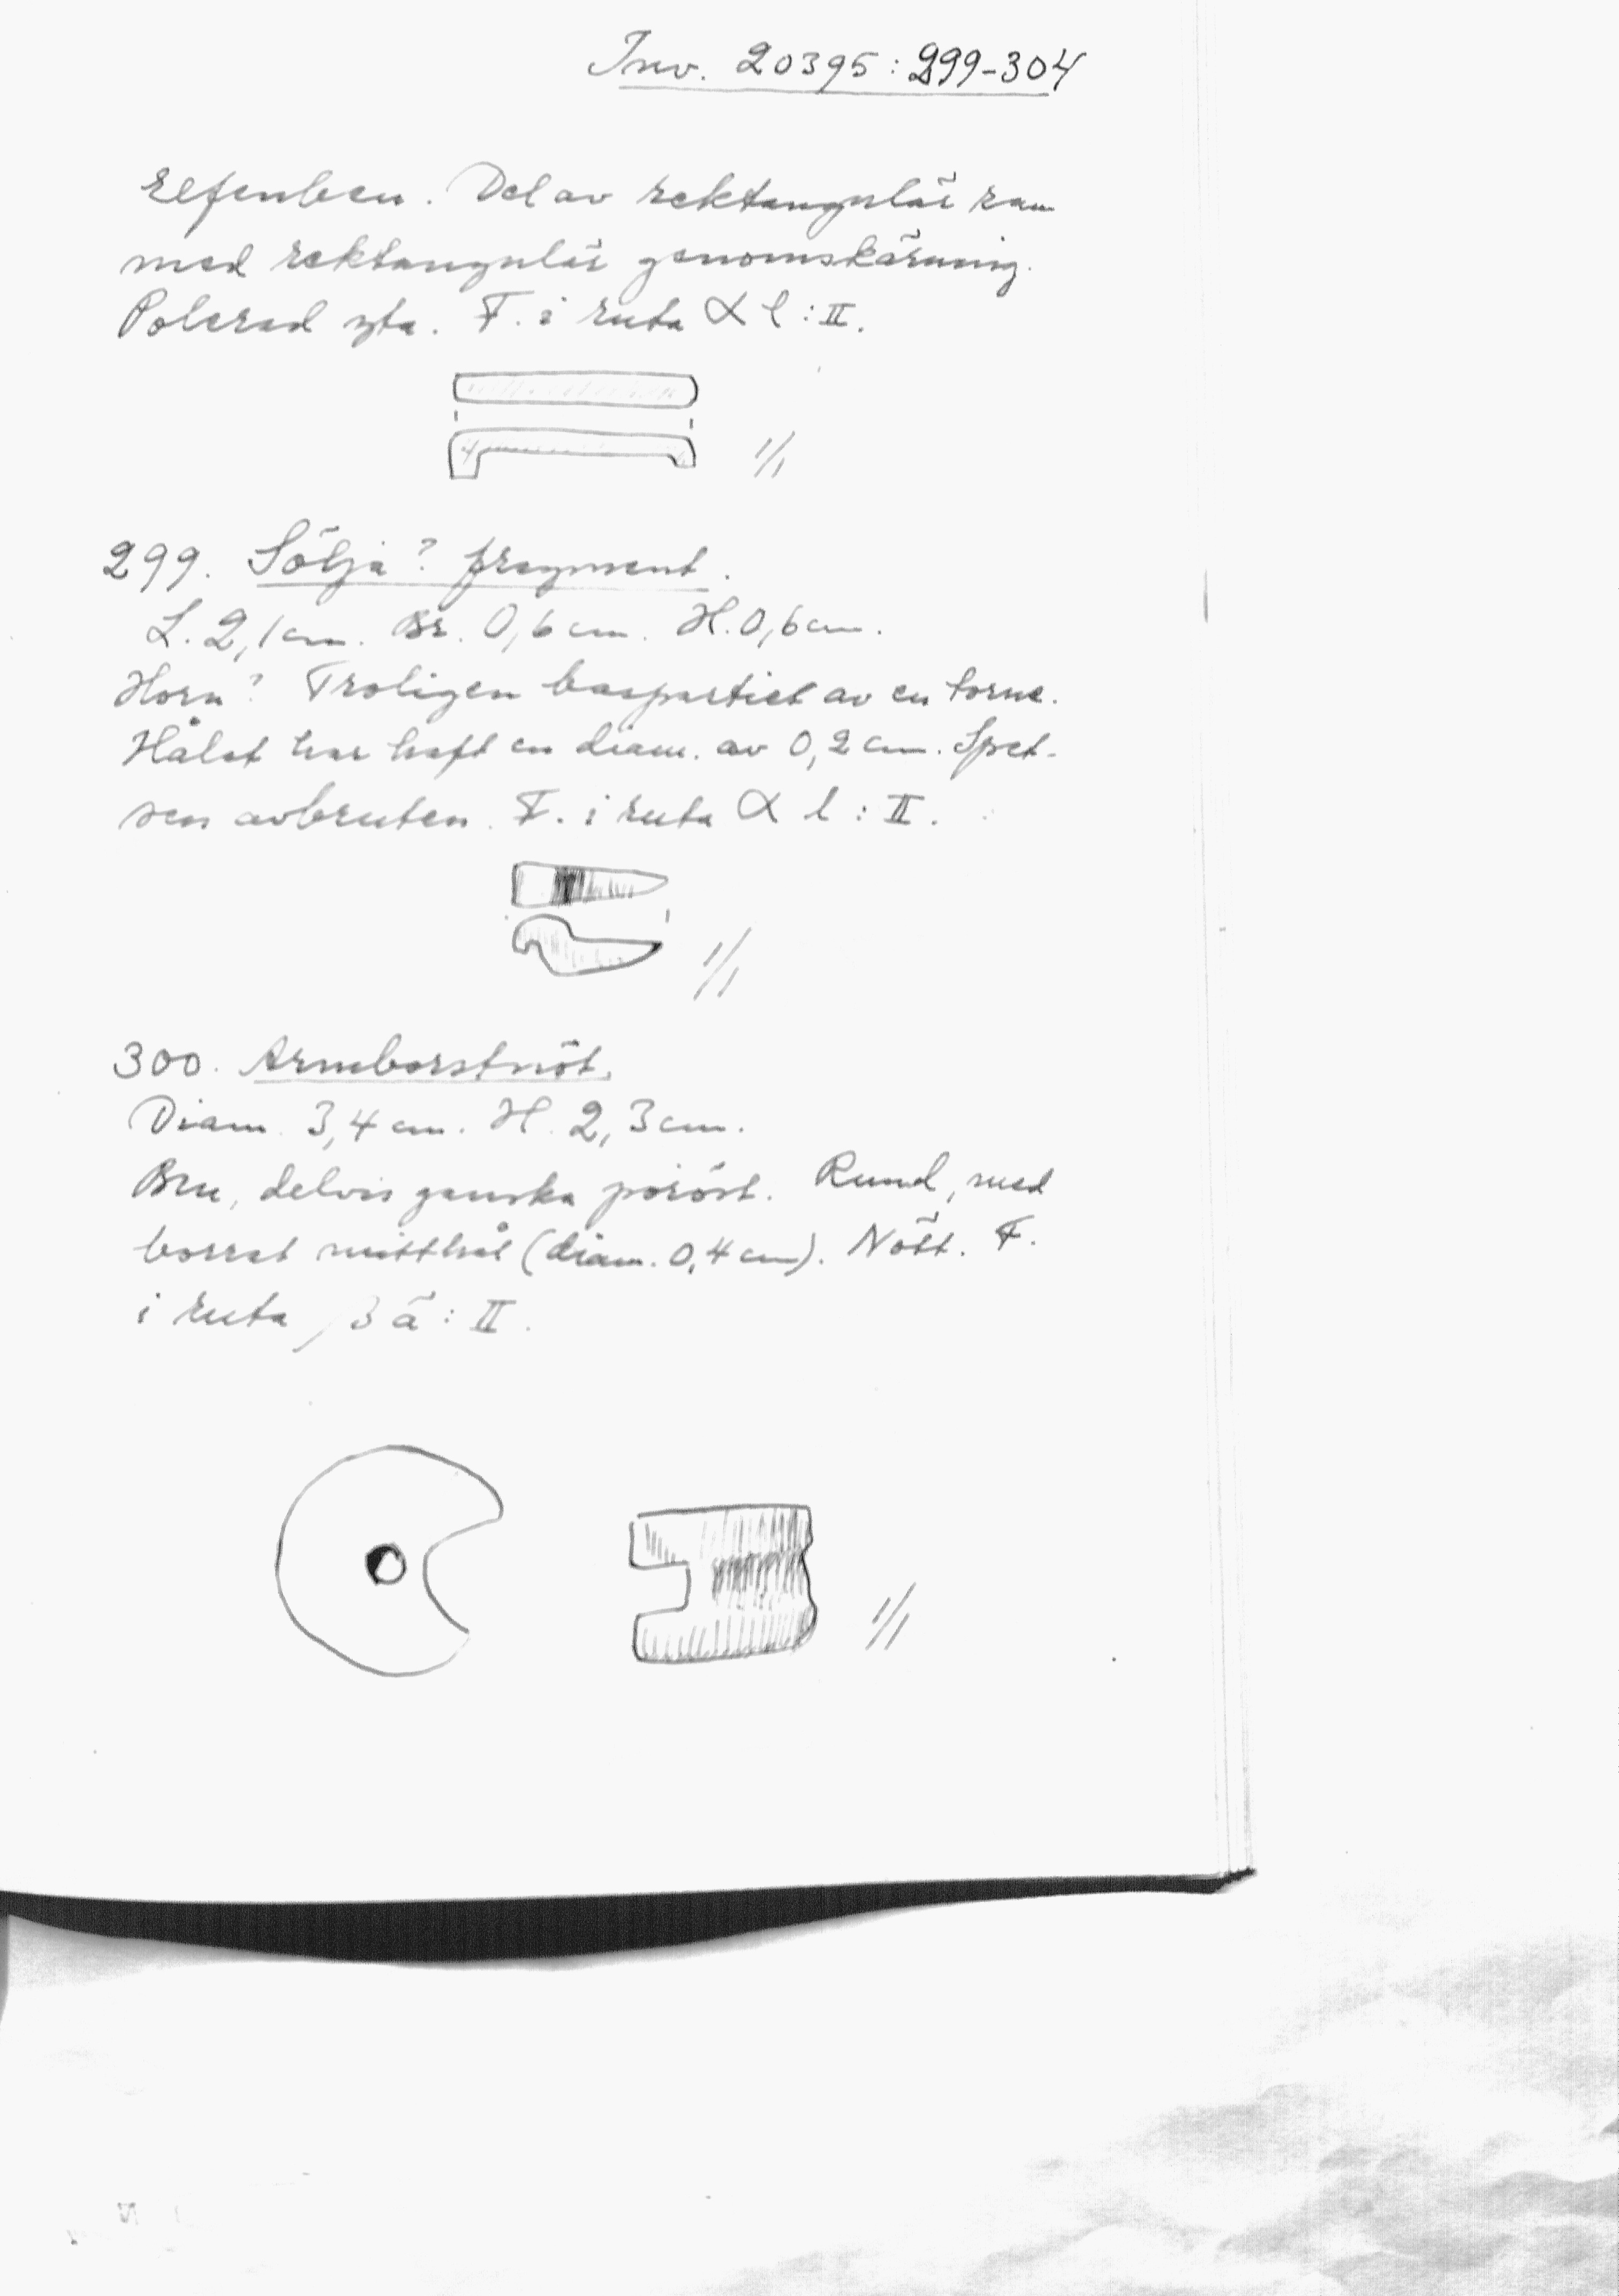 Inv. 20395:299-304
Elfenben. Del av rektangulär ram
med rektangulär genomskärning.
Polerad yta. F. i ruta α l:II.
1/1
299. Sölja? fragment.
L. 2,1 cm. Br. 0,6 cm. H. 0,6 cm.
Horn? Troligen baspartiet av en torne.
Hålet har haft en diam. av 0,2 cm. Spet-
sen avbruten. F. i ruta α l:II.
1/1
300. Armborstnöt.
Diam. 3,4 cm. H. 2,3 cm.
Ben, delvis ganska poröst. Rund, med
borrat mitthål (diam. 0,4 cm). Nött. F.
i ruta β ä:II.
1/1